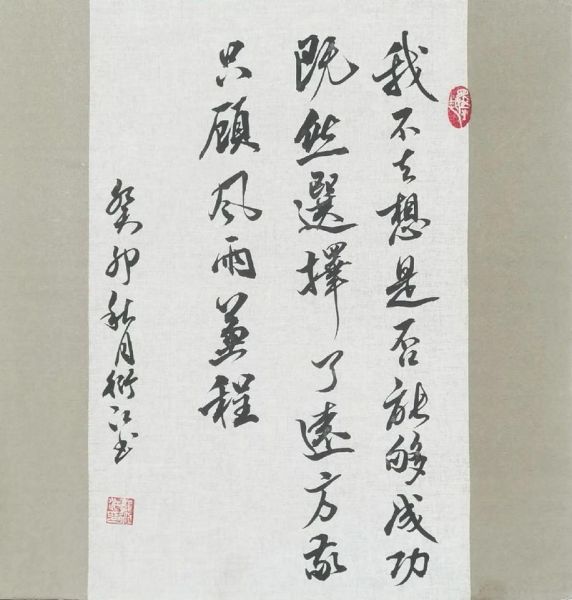 我不去想是否能够成功
既然選擇了遠方就
只顧风雨兼程
癸卯秋月衍江书